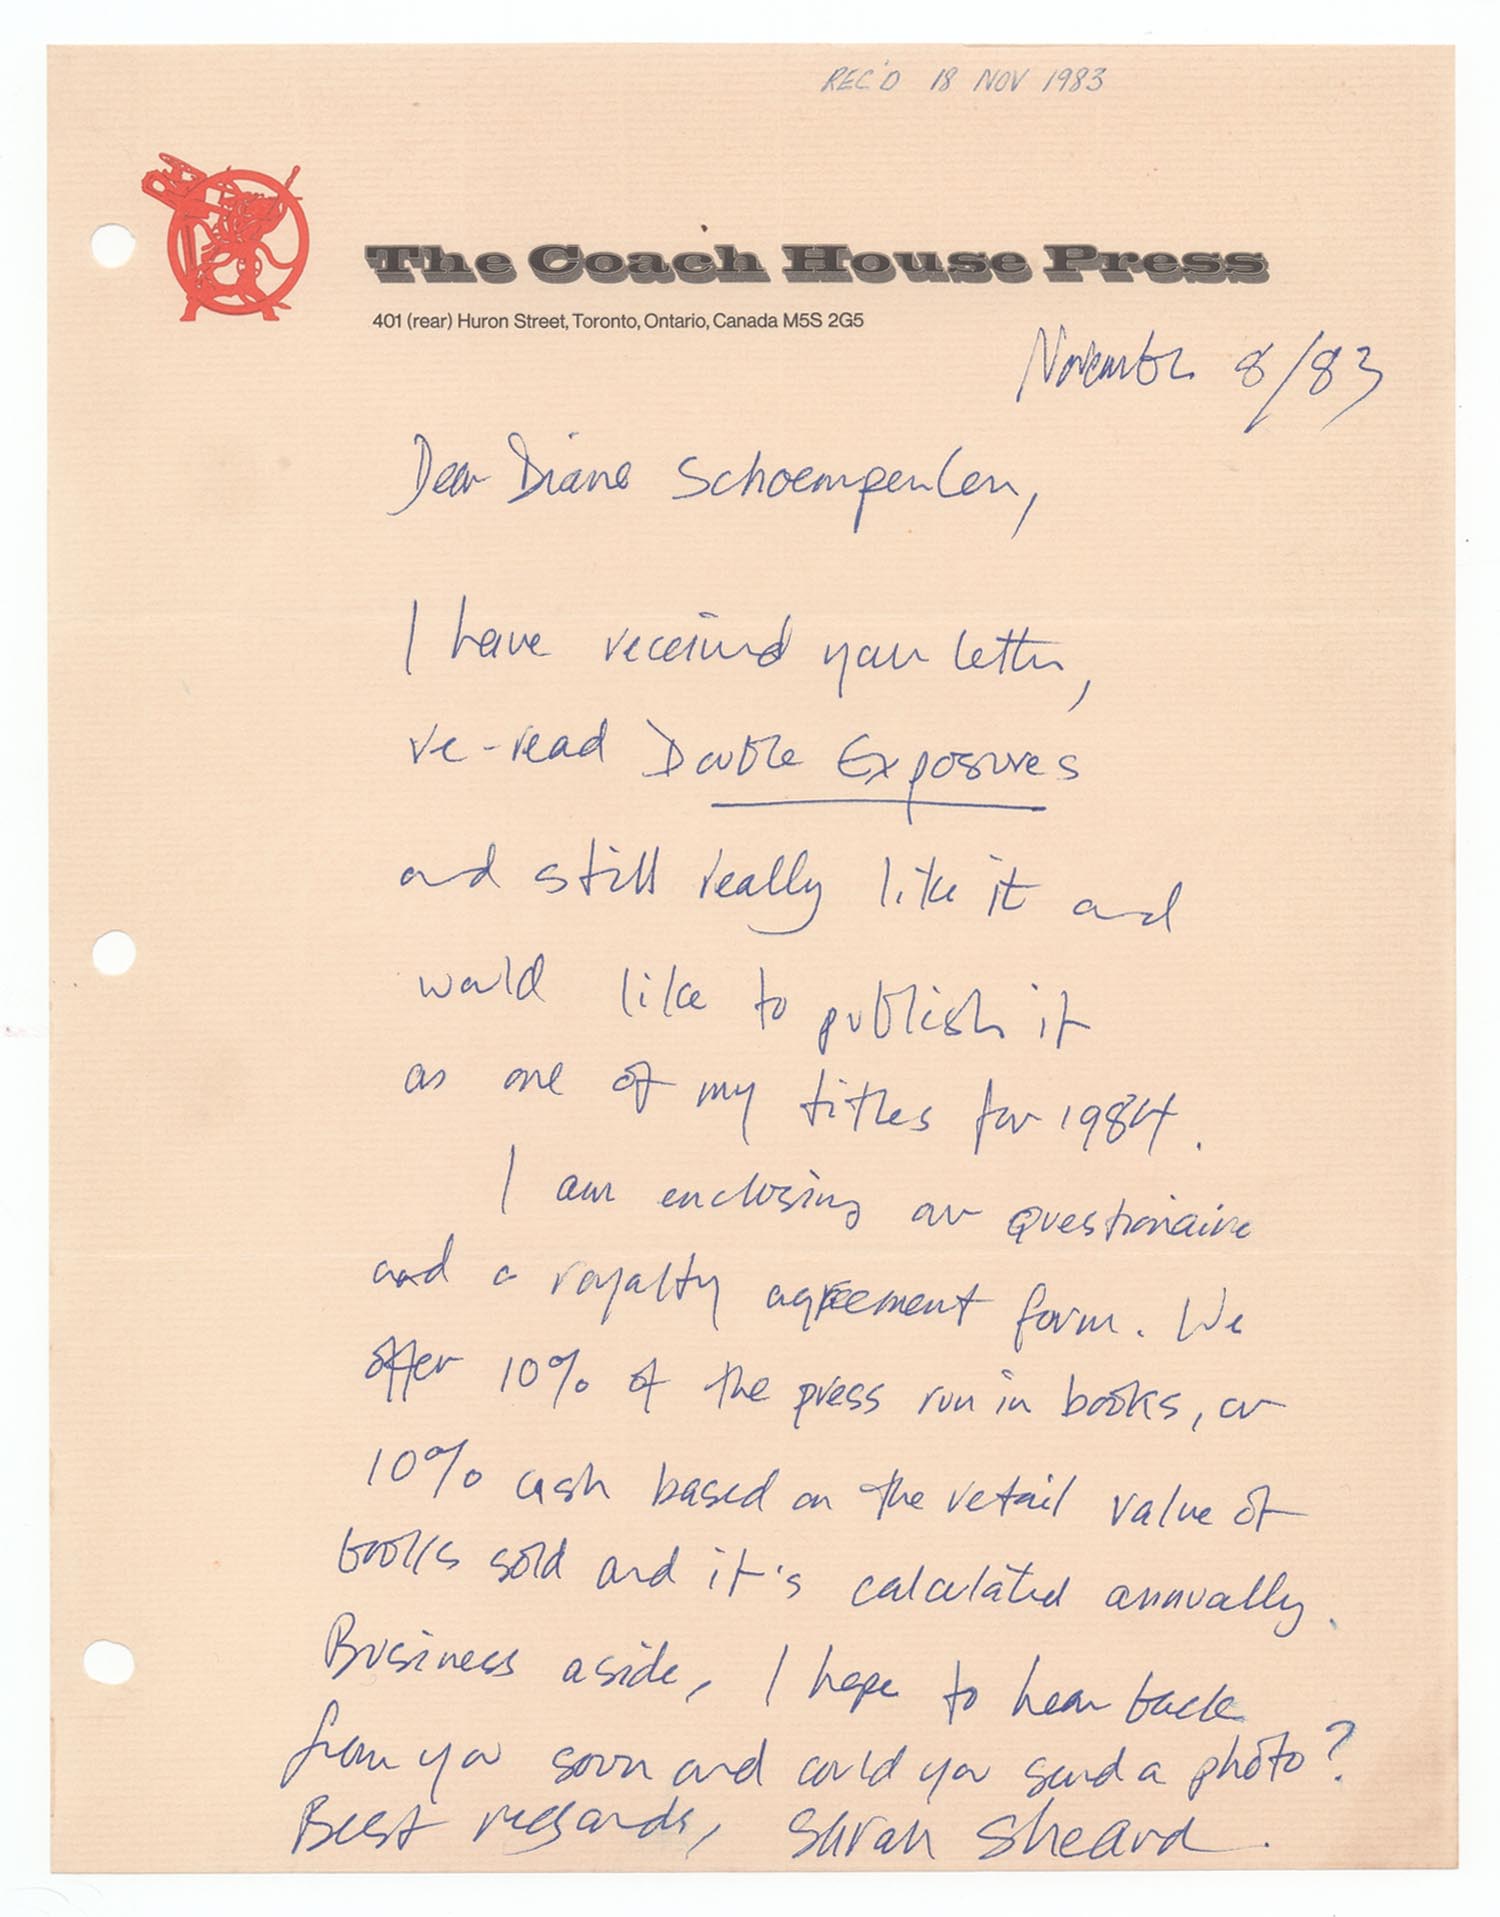 REC'D 18 NOV 1983
The Coach House Press
401 (rear) Huron Street, Toronto, Ontario, Canada M5S 2G5
November 8/83
Dear Diane Schoemperlen,
I have received your letter,
re-read Double Exposures
and still really like it and
would like to publish it
as one of my titles for 1984.
I am enclosing an questionaire
and a royalty agreement form. We
offer 10% of the press run in books, or
10% cash based on the retail value of
books sold and it's calculated annually.
Business aside, I hope to hear back
from you soon and could you send a photo?
Best regards, Sarah Sheard.